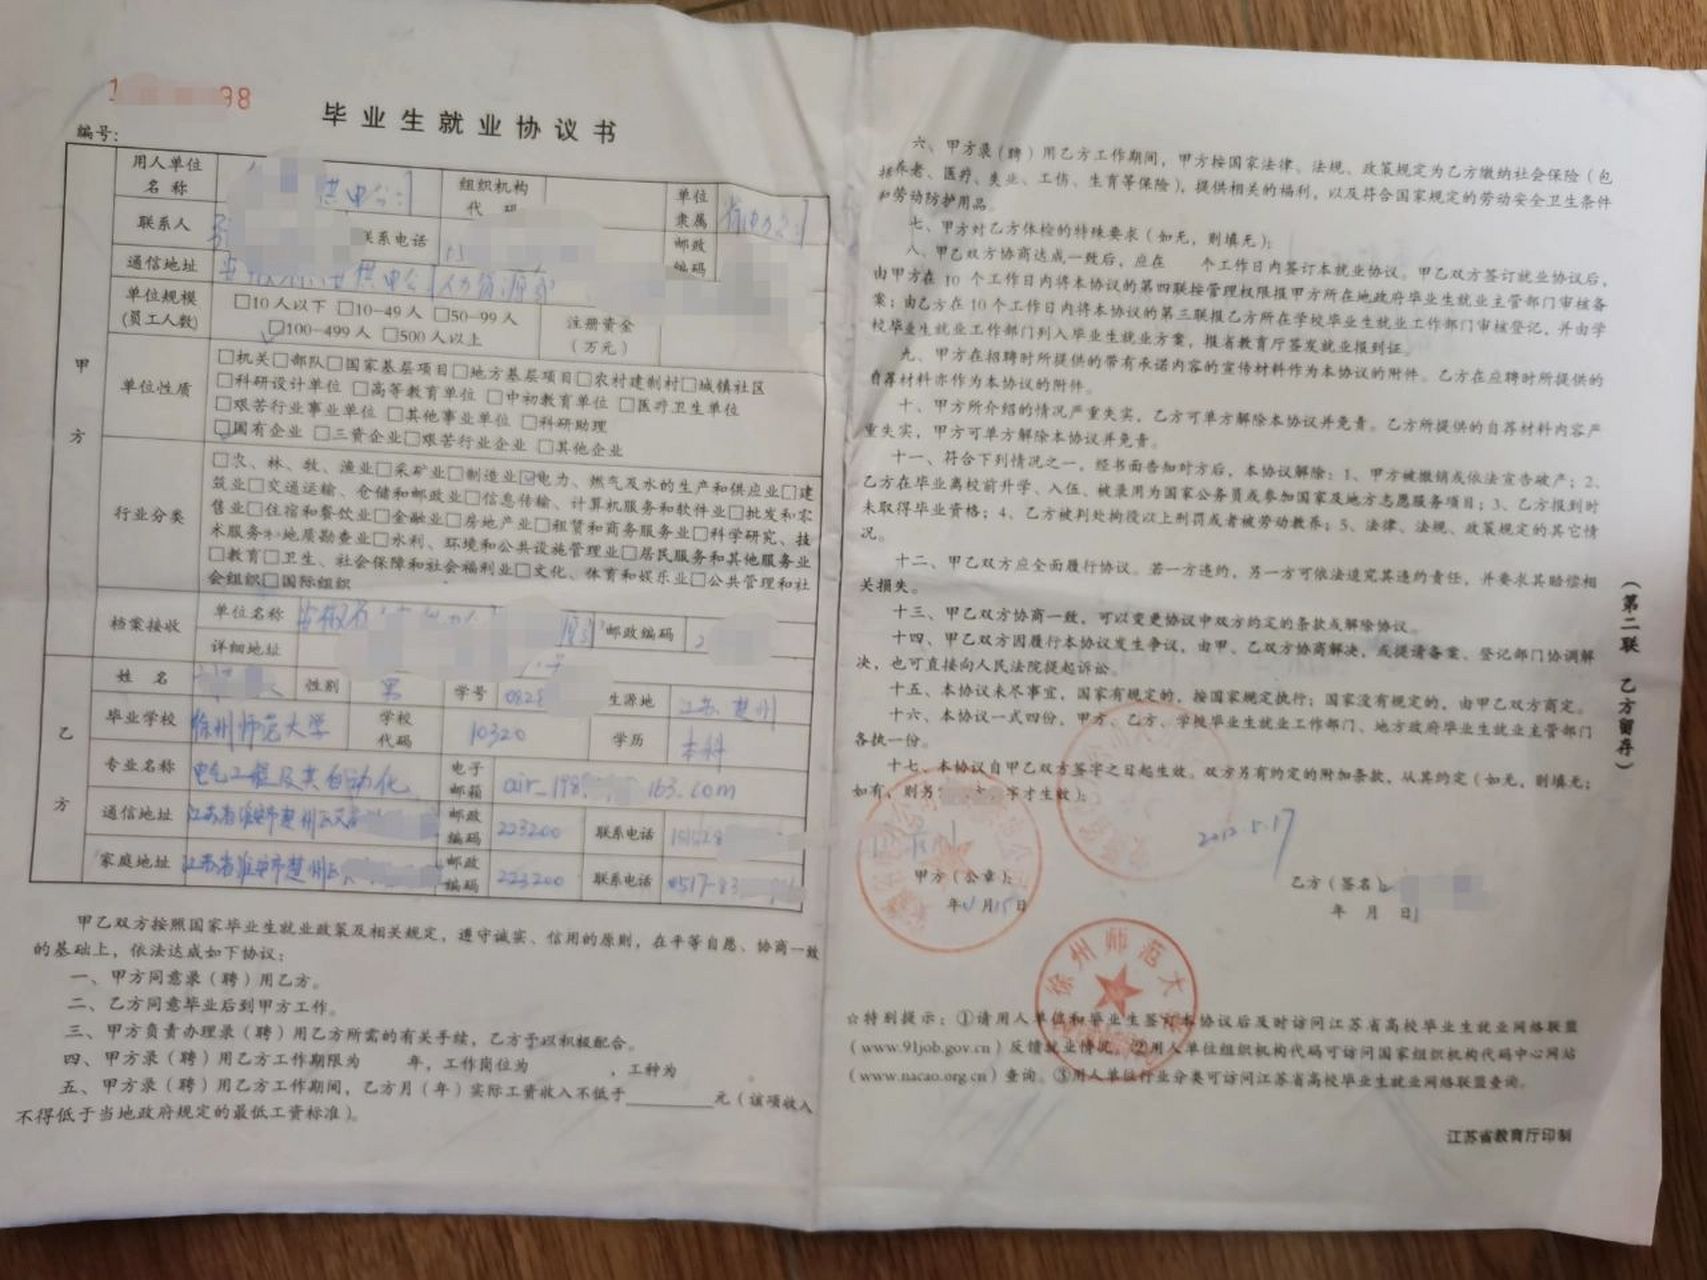 98
毕业生就业协议书
编号:
甲方
用人单位名称 供电公司 组织机构代码 单位隶属 省电力公司
联系人 联系电话 邮政编码
通信地址 供电公司人力资源部
单位规模(员工人数) □10人以下 □10-49人 □50-99人 注册资金(万元)
☑100-499人 □500人以上
单位性质
□机关□部队□国家基层项目□地方基层项目□农村建制村□城镇社区
□科研设计单位 □高等教育单位 □中初教育单位 □医疗卫生单位
□艰苦行业事业单位 □其他事业单位 □科研助理
☑国有企业 □三资企业□艰苦行业企业 □其他企业
行业分类
□农、林、牧、渔业□采矿业□制造业☑电力、燃气及水的生产和供应业□建
筑业□交通运输、仓储和邮政业□信息传输、计算机服务和软件业□批发和零
售业□住宿和餐饮业□金融业□房地产业□租赁和商务服务业□科学研究、技
术服务和地质勘查业□水利、环境和公共设施管理业□居民服务和其他服务业
□教育□卫生、社会保障和社会福利业□文化、体育和娱乐业□公共管理和社
会组织□国际组织
档案接收 单位名称 安徽省 邮政编码 2
详细地址
乙方
姓名 性别 男 学号 0828 生源地 江苏楚州
毕业学校 徐州师范大学 学校代码 10320 学历 本科
专业名称 电气工程及其自动化 电子邮箱 air_198 163.com
通信地址 江苏省淮安市楚州区 邮政编码 223200 联系电话
家庭地址 江苏省淮安市楚州区 邮政编码 223200 联系电话 0517-83
甲乙双方按照国家毕业生就业政策及相关规定，遵守诚实、信用的原则，在平等自愿、协商一致
的基础上，依法达成如下协议：
一、甲方同意录（聘）用乙方。
二、乙方同意毕业后到甲方工作。
三、甲方负责办理录（聘）用乙方所需的有关手续，乙方予以积极配合。
四、甲方录（聘）用乙方工作期限为 年，工作岗位为 ，工种为
五、甲方录（聘）用乙方工作期间，乙方月（年）实际工资收入不低于________元（该项收入
不得低于当地政府规定的最低工资标准）。
六、甲方录（聘）用乙方工作期间，甲方按国家法律、法规、政策规定为乙方缴纳社会保险（包
括养老、医疗、失业、工伤、生育等保险），提供相关的福利，以及符合国家规定的劳动安全卫生条件
和劳动防护用品。
七、甲方对乙方体检的特殊要求（如无，则填无）；
八、甲乙双方协商达成一致后，应在 个工作日内签订本就业协议。甲乙双方签订就业协议后，
由甲方在10个工作日内将本协议的第四联按管理权限报甲方所在地政府毕业生就业主管部门审核备
案；由乙方在10个工作日内将本协议的第三联报乙方所在学校毕业生就业工作部门审核登记，并由学
校毕业生就业工作部门列入毕业生就业方案，报省教育厅签发就业报到证。
九、甲方在招聘时所提供的带有承诺内容的宣传材料作为本协议的附件。乙方在应聘时所提供的
自荐材料亦作为本协议的附件。
十、甲方所介绍的情况严重失实，乙方可单方解除本协议并免责。乙方所提供的自荐材料内容严
重失实，甲方可单方解除本协议并免责。
十一、符合下列情况之一，经书面告知对方后，本协议解除：1、甲方被撤销或依法宣告破产；2、
乙方在毕业离校前升学、入伍、被录用为国家公务员或参加国家及地方志愿服务项目；3、乙方报到时
未取得毕业资格；4、乙方被判处拘役以上刑罚或者被劳动教养；5、法律、法规、政策规定的其它情
况。
十二、甲乙双方应全面履行协议。若一方违约，另一方可依法追究其违约责任，并要求其赔偿相
关损失。
十三、甲乙双方协商一致，可以变更协议中双方约定的条款或解除协议。
十四、甲乙双方因履行本协议发生争议，由甲、乙双方协商解决，或提请备案、登记部门协调解
决，也可直接向人民法院提起诉讼。
十五、本协议未尽事宜，国家有规定的，按国家规定执行；国家没有规定的，由甲乙双方商定。
十六、本协议一式四份，甲方、乙方、学校毕业生就业工作部门、地方政府毕业生就业主管部门
各执一份。
十七、本协议自甲乙双方签字之日起生效。双方另有约定的附加条款，从其约定（如无，则填无；
如有，则另 字才生效）；
2012.5.17
甲方（公章）： 乙方（签名）：
年 月15日 年 月 日
徐州师范大
☆特别提示：①请用人单位和毕业生签订本协议后及时访问江苏省高校毕业生就业网络联盟
（www.91job.gov.cn）反馈就业情况，②用人单位组织机构代码可访问国家组织机构代码中心网站
（www.nacao.org.cn）查询。③用人单位行业分类可访问江苏省高校毕业生就业网络联盟查询。
江苏省教育厅印制
（第二联 乙方留存）